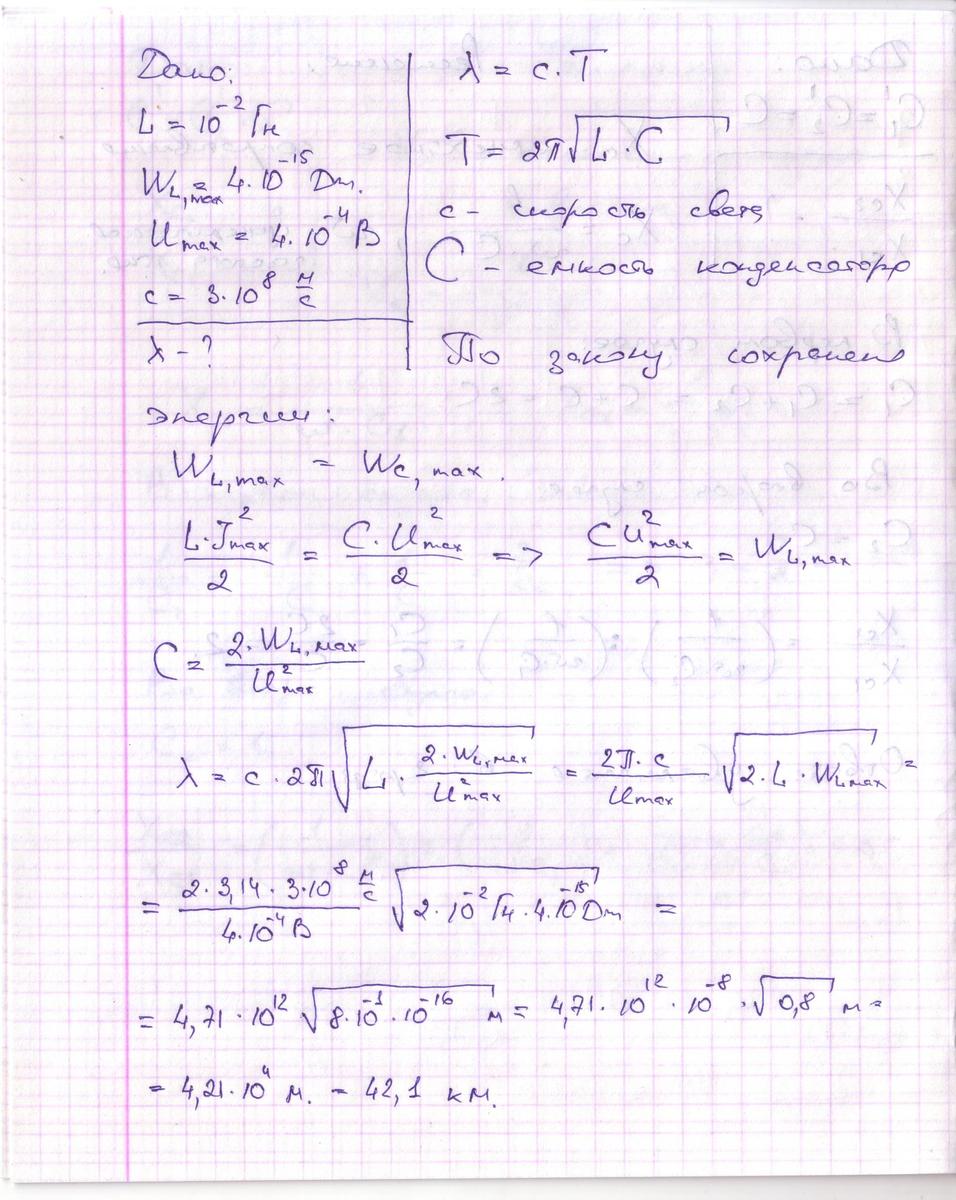 Дано:
L = 10⁻² Гн
W_L,max = 4·10⁻¹⁵ Дж.
U_max = 4·10⁻⁴ В
c = 3·10⁸ м/с
λ - ?
λ = c·T
T = 2π√(L·C)
c - скорость света
C - емкость конденсатора
По закону сохранения
энергии:
W_L,max = W_C,max.
L·I_max²/2 = C·U_max²/2 => CU_max²/2 = W_L,max
C = 2·W_L,max/U_max²
λ = c·2π√(L·2·W_L,max/U_max²) = 2π·c/U_max √(2·L·W_L,max) =
= 2·3,14·3·10⁸ м/с / 4·10⁻⁴ В √(2·10⁻² Гн·4·10⁻¹⁵ Дж) =
= 4,71·10¹² √(8·10⁻¹·10⁻¹⁶) м = 4,71·10¹²·10⁻⁸·√0,8 м =
= 4,21·10⁴ м. = 42,1 км.